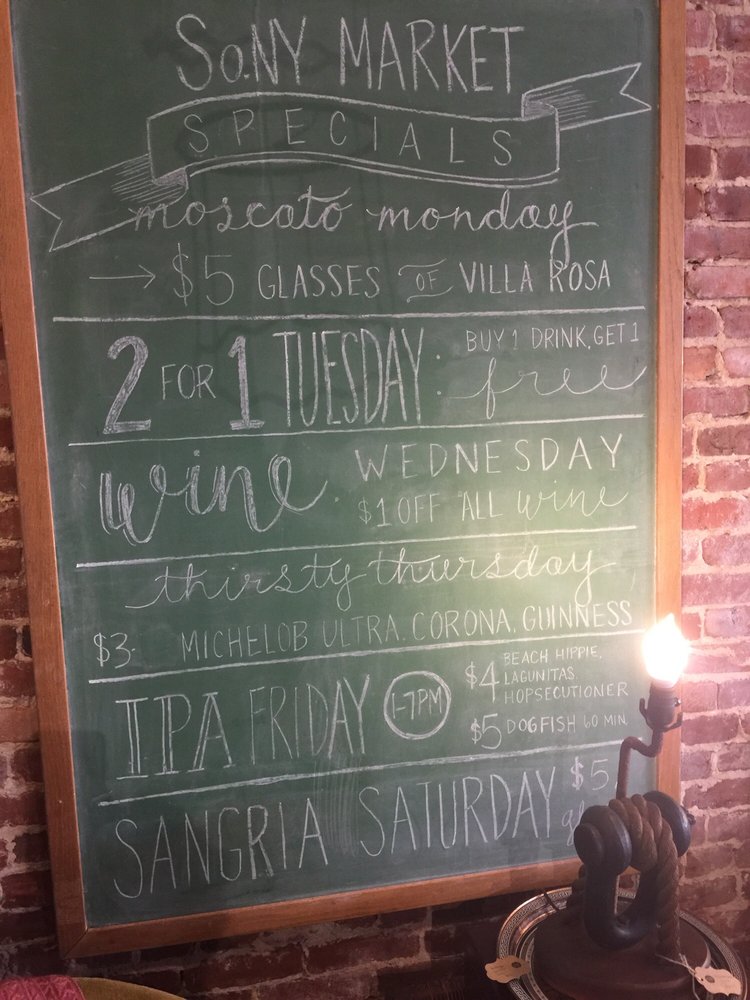 So.NY MARKET
SPECIALS
moscato monday
→ $5 GLASSES OF VILLA ROSA
2 FOR 1 TUESDAY: BUY 1 DRINK, GET 1
free
wine WEDNESDAY
$1 OFF ALL wine
thirsty thursday
$3 MICHELOB ULTRA, CORONA, GUINNESS
IPA FRIDAY 1-7PM
$4 BEACH HIPPIE,
LAGUNITAS
HOPSECUTIONER
$5 DOGFISH 60 MIN.
SANGRIA SATURDAY $5